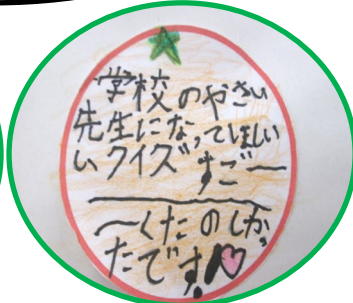 学校のやさい
先生になってほしい
いクイズ すごー
〜くたのしかっ
たです!